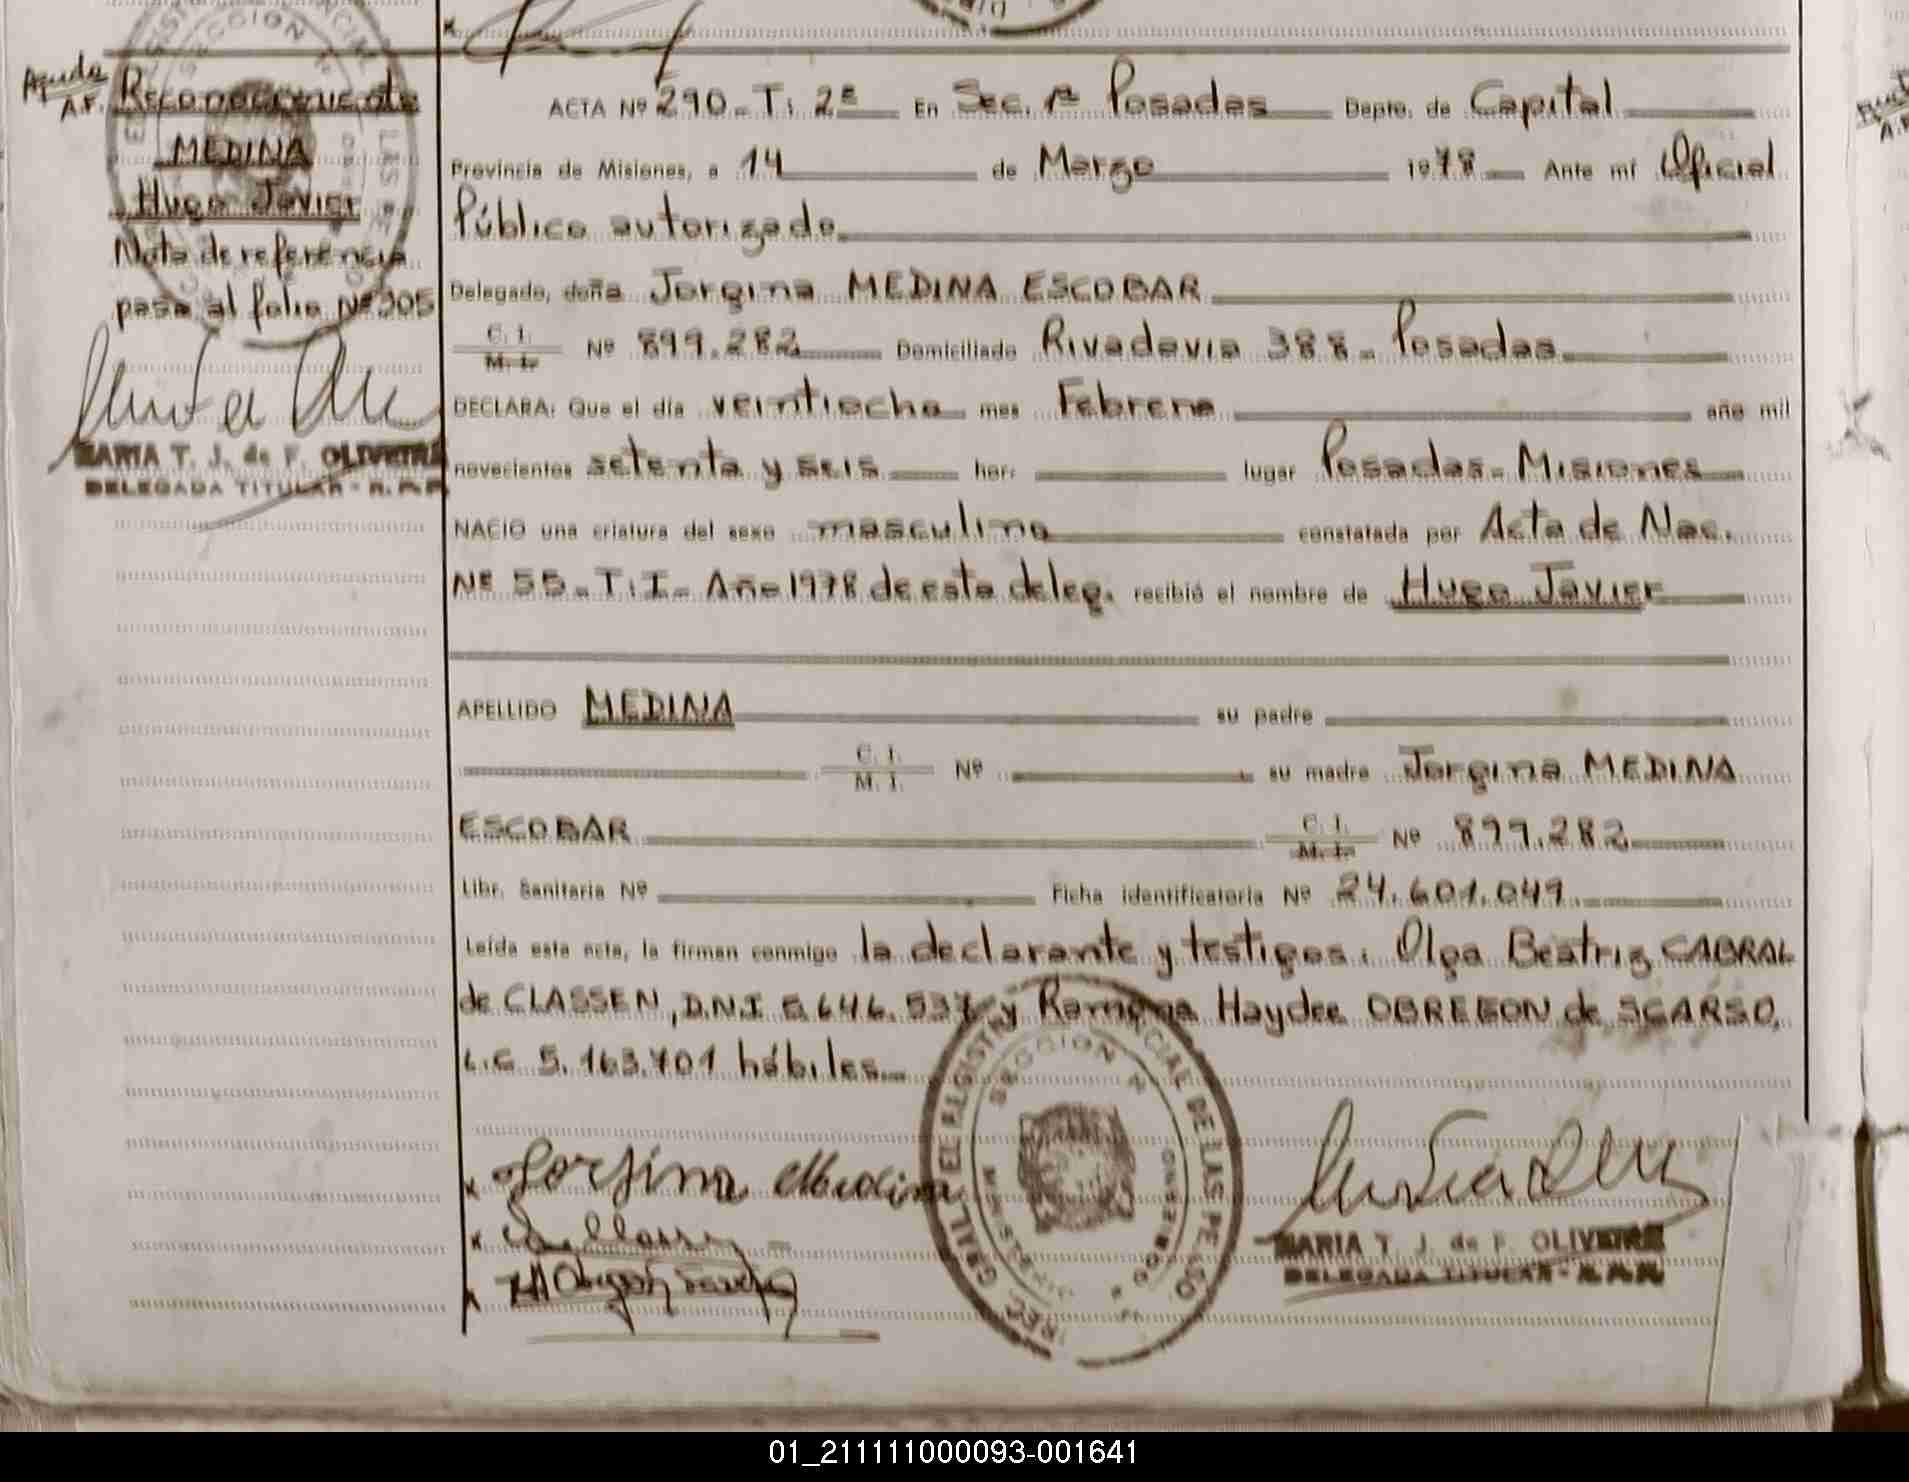 Ayuda
A.F.
Reconocimiento
MEDINA
Hugo Javier
Nota de referencia
pasa al folio Nº 305
MARIA T. J. de F. OLIVEIRA
DELEGADA TITULAR - R.P.P.
ACTA Nº 290 - T: 2º En Sec. 1ª Posadas Depto. de Capital
Provincia de Misiones, a 14 de Marzo 1978 Ante mí Oficial
Público autorizado
Delegado, doña Jorgina MEDINA ESCOBAR
C. I.
M. I. Nº 899.282 Domiciliado Rivadavia 388 - Posadas
DECLARA: Que el día veintiocho mes Febrero año mil
novecientos setenta y seis hora lugar Posadas - Misiones
NACIO una criatura del sexo masculino constatada por Acta de Nac.
Nº 55 - T: I - Año 1978 de esta deleg. recibió el nombre de Hugo Javier
APELLIDO MEDINA su padre
C. I.
M. I. Nº su madre Jorgina MEDINA
ESCOBAR C. I.
M. I. Nº 899.282
Libr. Sanitaria Nº Ficha identificatoria Nº 24.601.049
Leída esta acta, la firman conmigo la declarante y testigos: Olga Beatriz CABRAL
de CLASSEN, D.N.I 5.646.537 y Ramona Haydee OBREGON de SCARSO,
L.C 5.163.701 hábiles.
Jorgina Medina
SECCION 1ª
MARIA T. J. de F. OLIVEIRA
DELEGADA TITULAR - R.P.P.
01_211111000093-001641